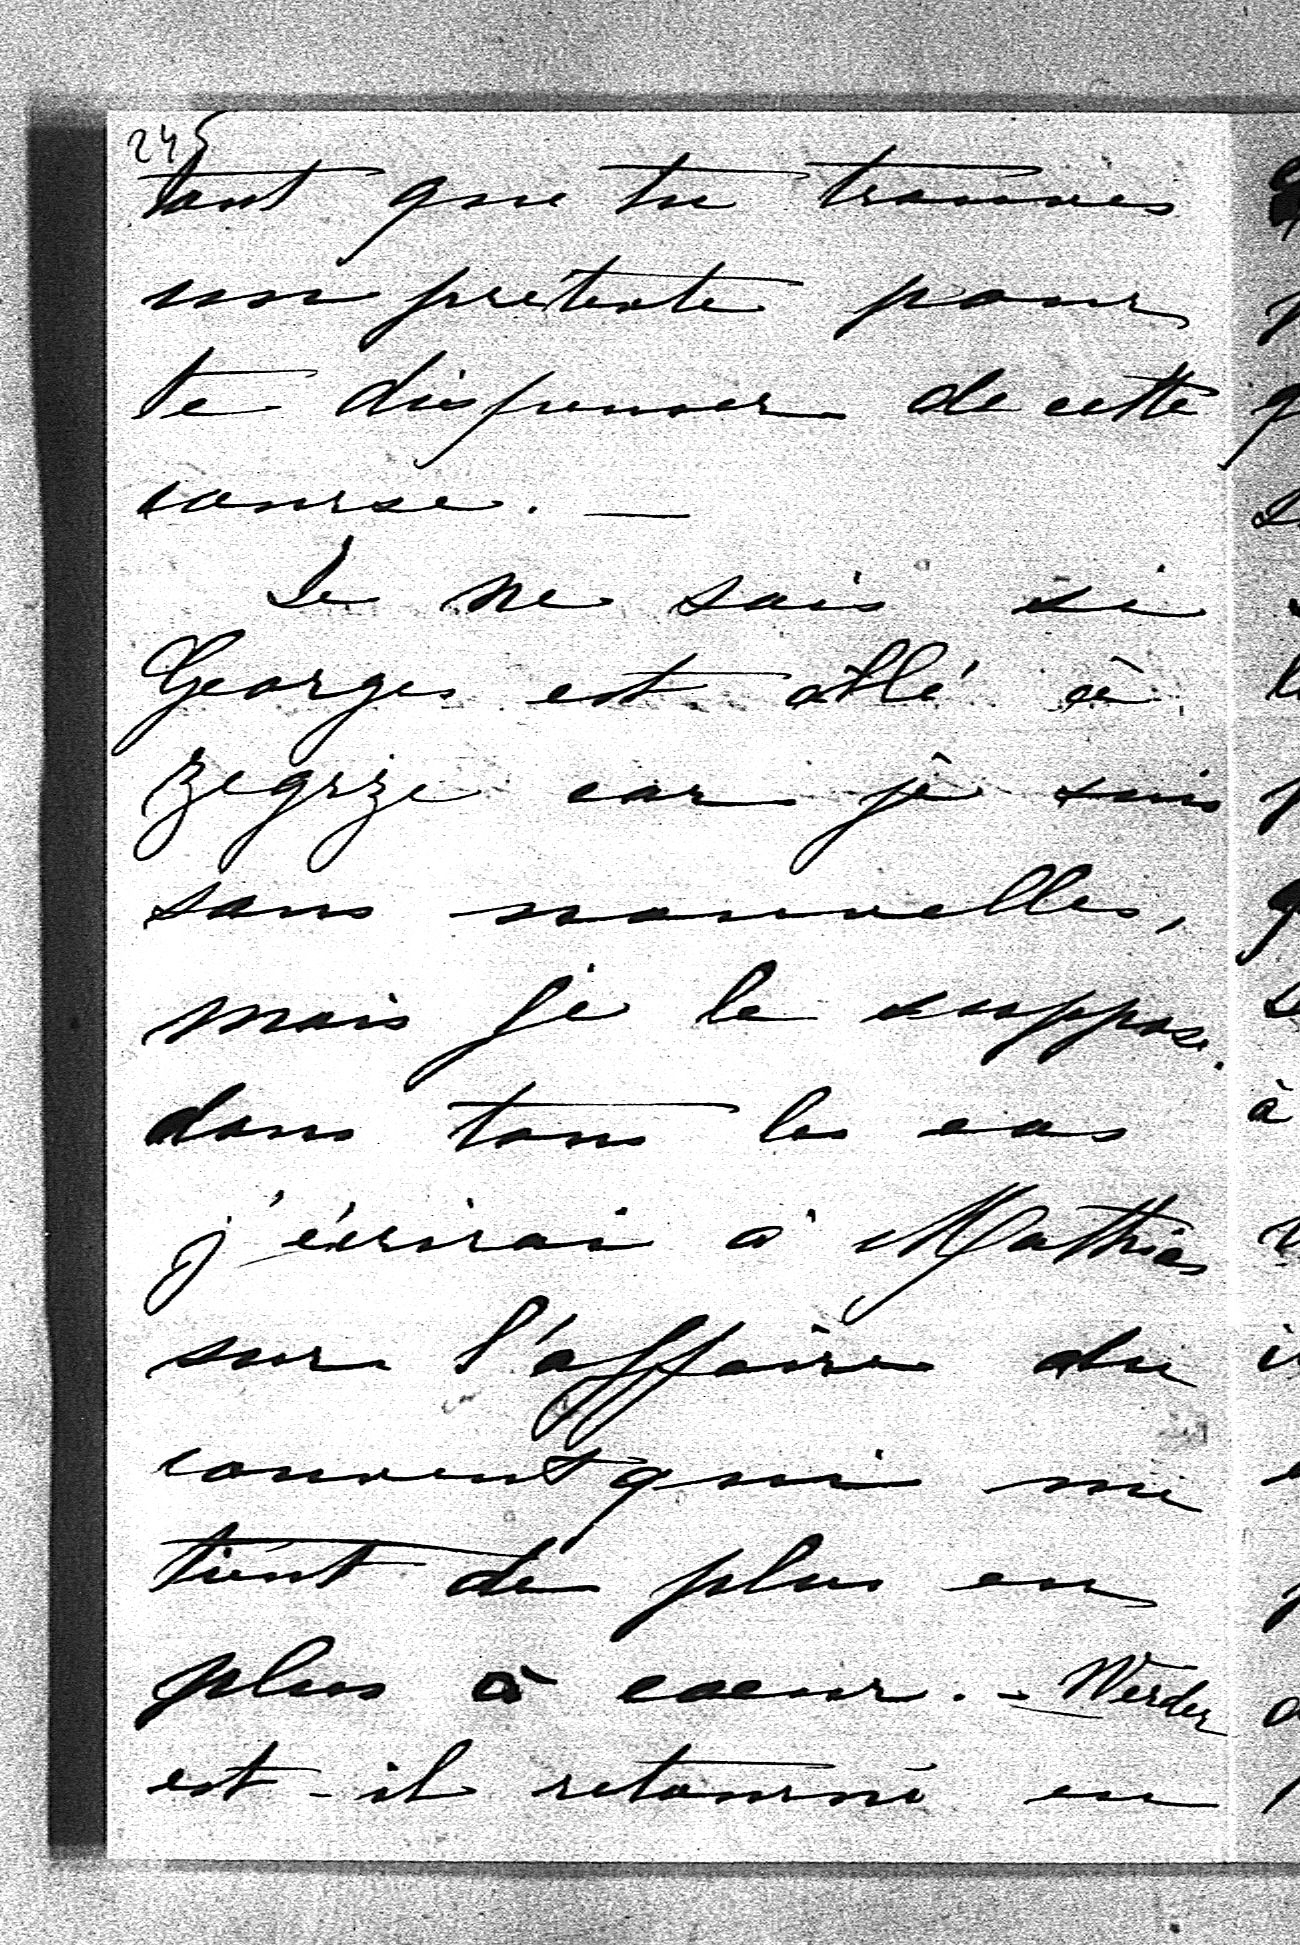 245
tant que tu trouves
un pretexte pour
te dispenser de cette
course. —
Je ne sais si
Georges est allé à
Zegrze car je suis
sans nouvelles,
mais je le suppose.
dans tous les cas
j'écrirai à Mathias
sur l'affaire du
couvent qui me
tient de plus en
plus à coeur. — Werder
est-il retourné en